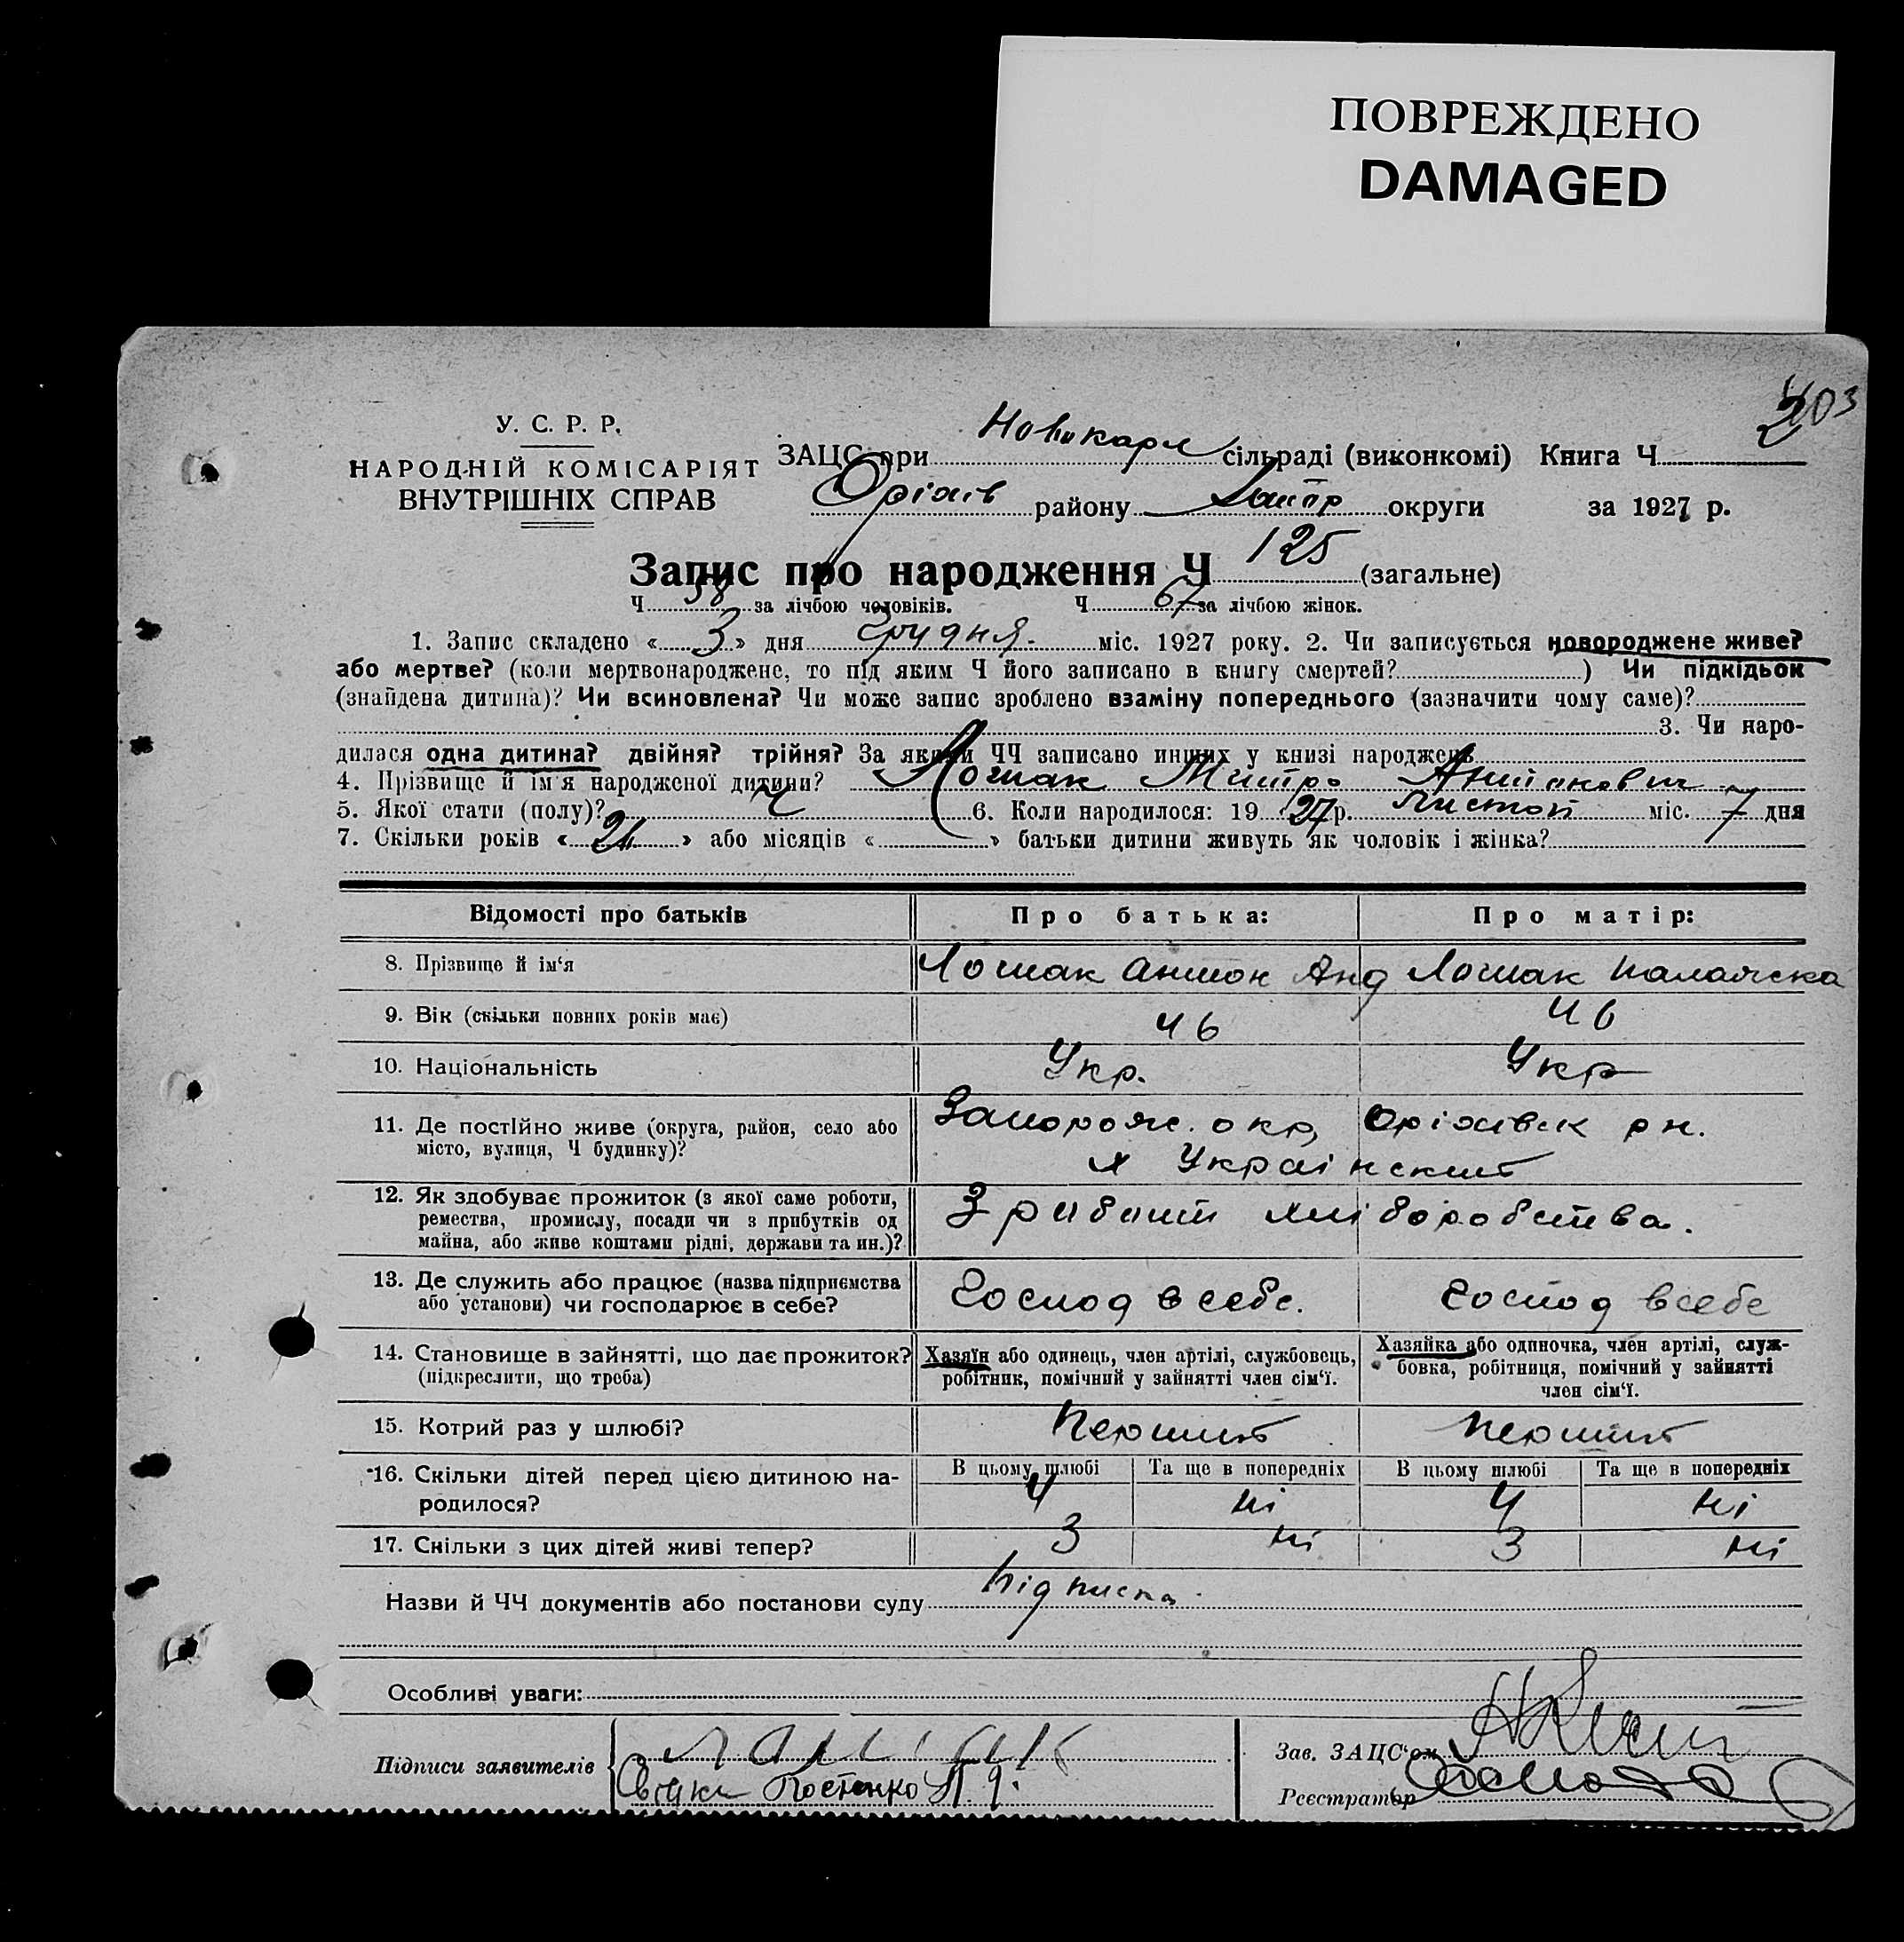 ПОВРЕЖДЕНО
DAMAGED
403
У. С. Р. Р.
НАРОДНІЙ КОМІСАРІЯТ
ВНУТРІШНІХ СПРАВ
ЗАЦС при Новокарл сільраді (виконкомі) Книга Ч 2
Оріхів району Запор округи за 1927 р.
Запис про народження Ч 125 (загальне)
Ч 58 за лічбою чоловіків. Ч 67 за лічбою жінок.
1. Запис складено « 3 » дня Грудня міс. 1927 року. 2. Чи записується новороджене живе?
або мертве? (коли мертвонароджене, то під яким Ч його записано в книгу смертей? ) Чи підкідьок
(знайдена дитина)? Чи всиновлена? Чи може запис зроблено взаміну попереднього (зазначити чому саме)?
3. Чи наро-
дилася одна дитина? двійня? трійня? За якими ЧЧ записано инших у книзі народжень
4. Прізвище й ім'я народженої дитини? Лошак Митро Антонович
5. Якої стати (полу)? Ч 6. Коли народилося: 19 27 р. Листоп міс. 7 дня
7. Скільки років « 24 » або місяців « » батьки дитини живуть як чоловік і жінка?
Відомості про батьків Про батька: Про матір:
8. Прізвище й ім'я Лошак Антон Анд Лошак Палажка
9. Вік (скільки повних років має) 46 46
10. Національність Укр. Укр
11. Де постійно живе (округа, район, село або Запорож. окр, Оріхівск рн.
місто, вулиця, Ч будинку)? х Украінский
12. Як здобуває прожиток (з якої саме роботи, З работи хліборобства.
ремества, промислу, посади чи з прибутків од
майна, або живе коштами рідні, держави та ин.)?
13. Де служить або працює (назва підприємства Господ в себе. Господ в себе
або установи) чи господарює в себе?
14. Становище в зайнятті, що дає прожиток? Хазяїн або одинець, член артілі, службовець, Хазяйка або одиночка, член артілі, служ-
(підкреслити, що треба) робітник, помічний у зайнятті член сім'ї. бовка, робітниця, помічний у зайнятті
член сім'ї.
15. Котрий раз у шлюбі? Перший Перший
16. Скільки дітей перед цією дитиною на- В цьому шлюбі Та ще в попередніх В цьому шлюбі Та ще в попередніх
родилося? 4 ні 4 ні
17. Скільки з цих дітей живі тепер? 3 ні 3 ні
Назви й ЧЧ документів або постанови суду Підписка
Особливі уваги:
Підписи заявителів Лошак
Свідки Костенко
Зав. ЗАЦС'ом
Реєстратор